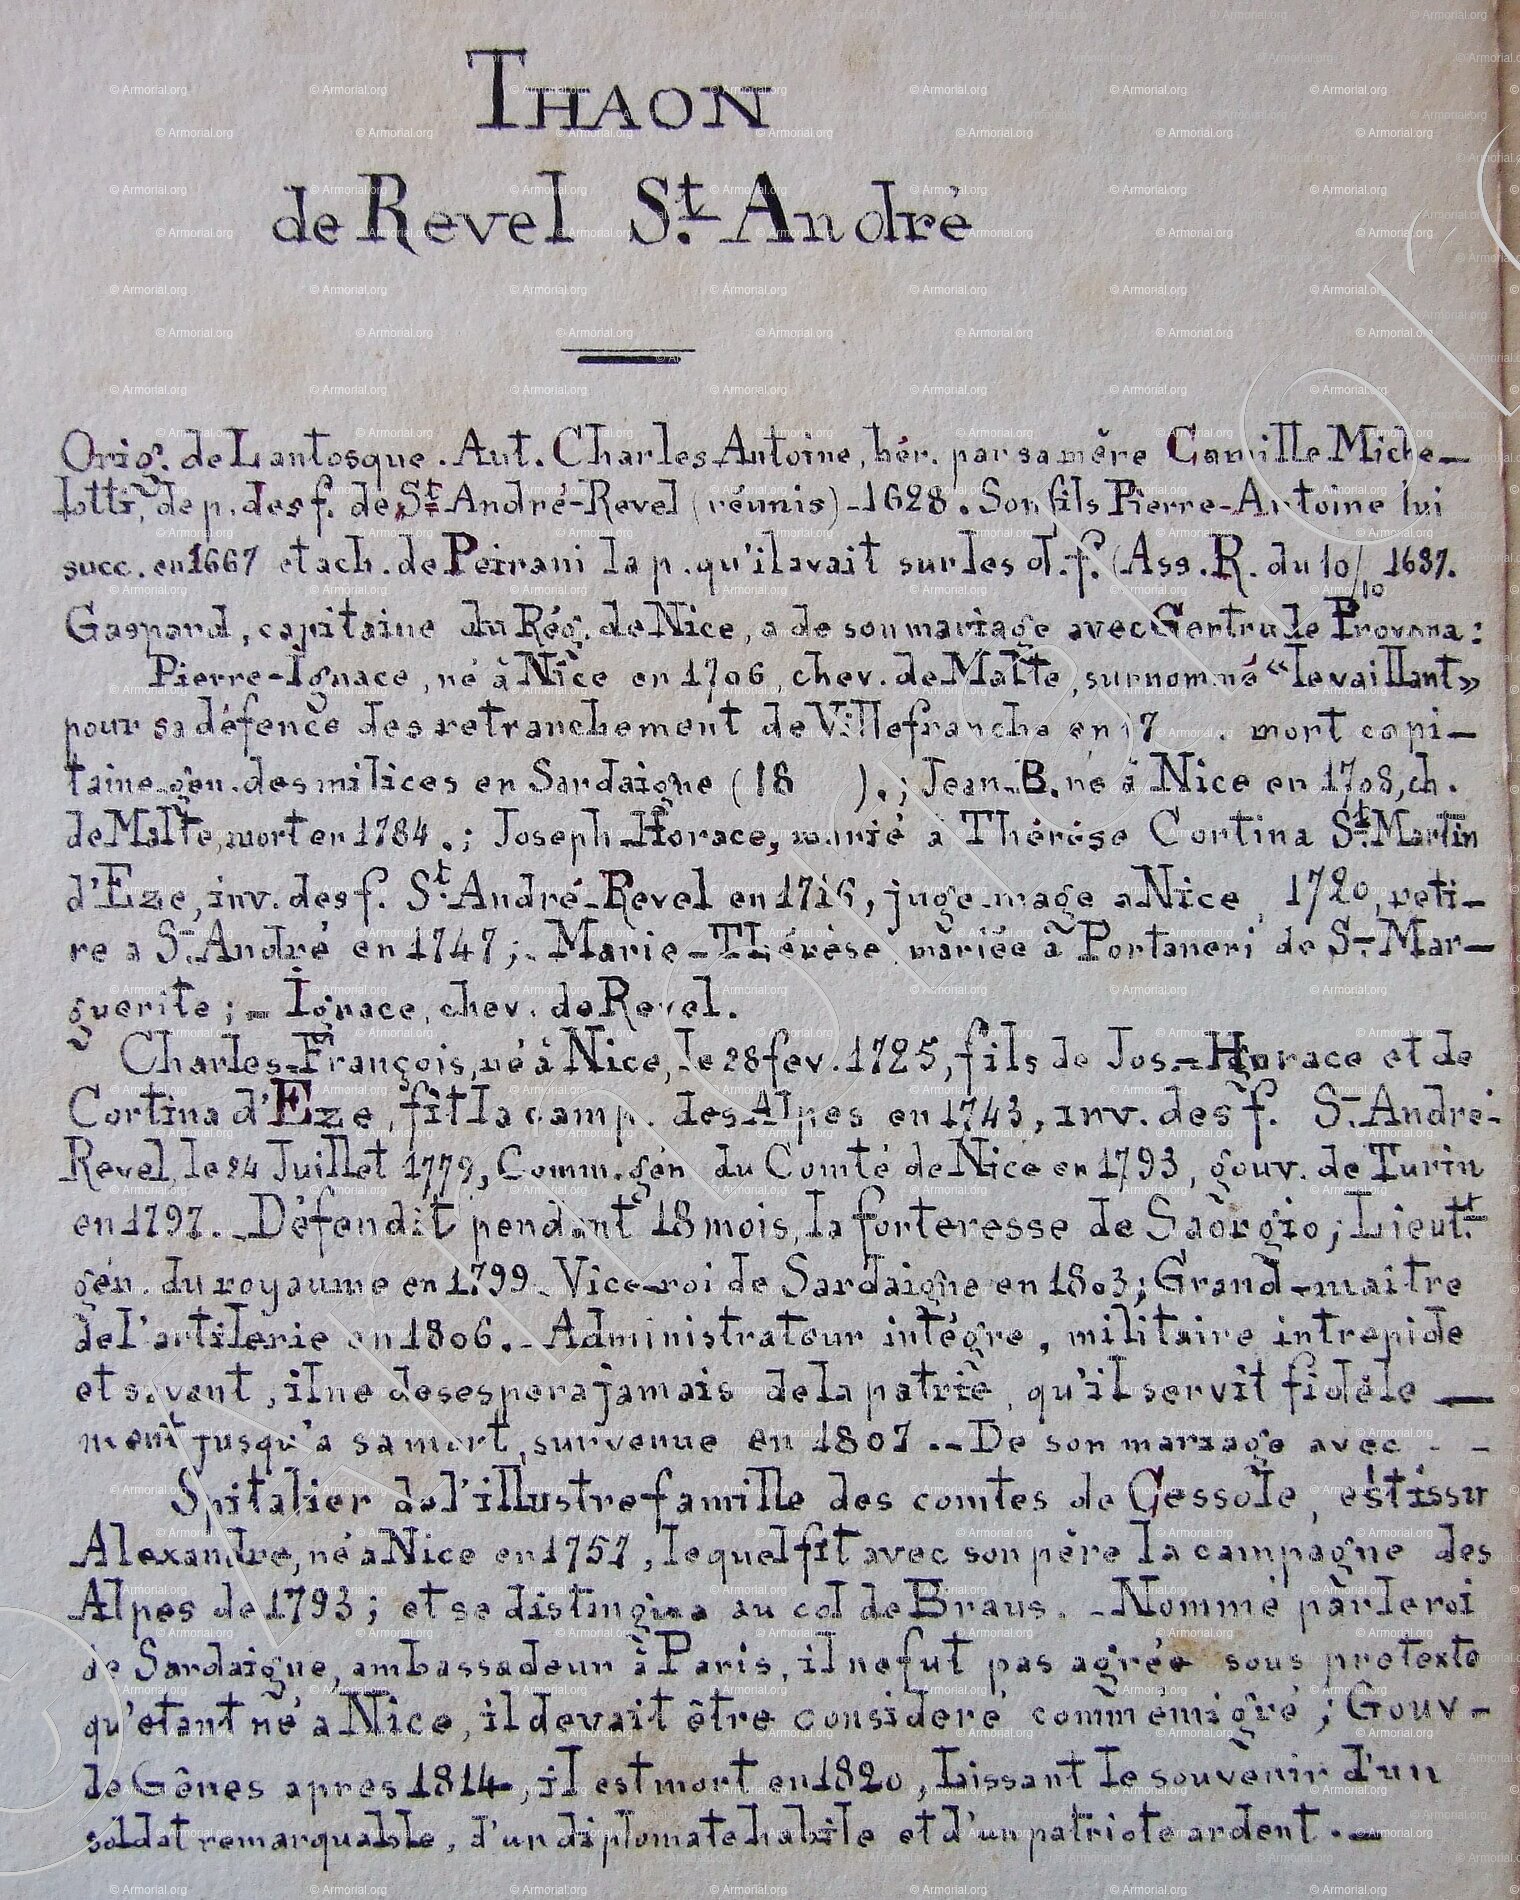 THAON
de Revel St. André
Orig. de Lantosque. Aut. Charles Antoine, hér. par sa mère Camille Miche-
lotti, de p. des f. de St André-Revel (réunis) - 1628. Son fils Pierre-Antoine lui
succ. en 1667 et ach. de Peirani la p. qu'il avait sur les d. f. (Ass. R. du 10/10 1687.
Gaspard, capitaine du Rég. de Nice, a de son mariage avec Gertrude Provana:
Pierre-Ignace, né à Nice en 1706, chev. de Malte, surnommé «le vaillant»
pour sa défence des retranchement de Villefranche en 17 . mort capi-
taine gén. des milices en Sardaigne (18 ).; Jean-B. né à Nice en 1708, ch.
de Malte, mort en 1784.; Joseph-Horace, marié à Thérèse Cortina St. Martin
d'Eze, inv. des f. St. André-Revel en 1716, juge-mage a Nice, 1720, reti-
re a St. André en 1747;- Marie-Thérèse, mariée à Portaneri de St. Mar-
guerite;- Ignace, chev. de Revel.
Charles-François, né à Nice, le 28 fev. 1725, fils de Jos.-Horace et de
Cortina d'Eze, fit la camp. des Alpes en 1743, inv. des f. St. André-
Revel, le 24 Juillet 1779, Comm. gén du Comté de Nice en 1793, gouv. de Turin
en 1797.-Défendit pendant 18 mois, la forteresse de Saorgio; Lieutt.
gén. du royaume en 1799. Vice-roi de Sardaigne en 1803; Grand-maitre
de l'artilerie en 1806.-Administrateur intégre, militaire intrepide
et savant, il ne desespera jamais de la patrie, qu'il servit fidèle-
ment jusqu'a sa mort, survenue en 1807.-De son mariage avec - -
Spitalier de l'illustre famille des comtes de Cessole, est issu
Alexandre, né a Nice en 1757, lequel fit avec son père la campagne des
Alpes de 1793; et se distingua au col de Braus.-Nommé par le roi
de Sardaigne, ambassadeur à Paris, il ne fut pas agrée sous pretexte
qu'etant né a Nice, il devait être consideré comm'émigré; Gouv-
de Gênes apres 1814, il est mort en 1820, laissant le souvenir d'un
soldat remarquable, d'un diplomate habile et d'un patriote ardent.-
© Armorial.org